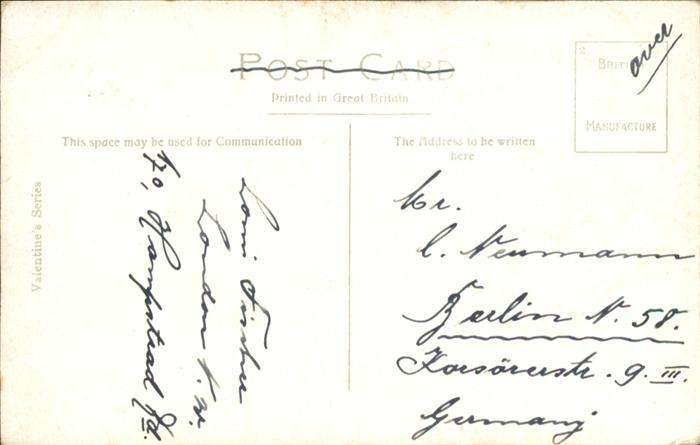 over
POST CARD
Printed in Great Britain
BRITISH
MANUFACTURE
This space may be used for Communication
The Address to be written
here
Valentine's Series
Fischer
London N.W.
70, Hampstead Rd.
Mr.
C. Neumann
Berlin N. 58.
Korsörerstr. 9. III.
Germany